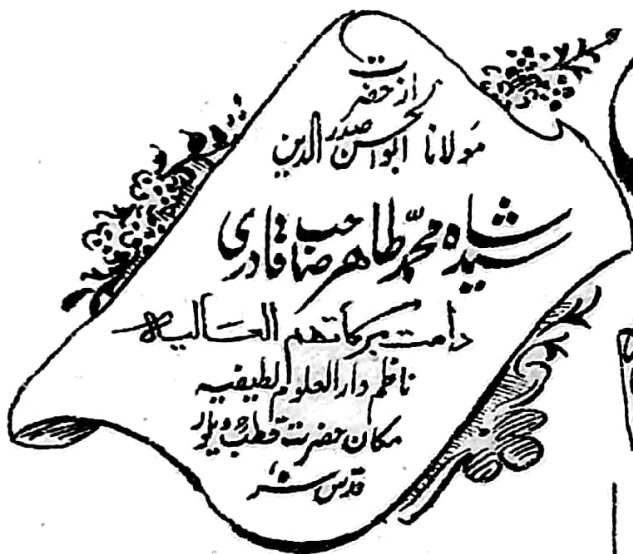 از حضرت
مولانا ابوالحسن صدر الدین
سید شاہ محمد طاہر صاحب قادری
دامت برکاتہم العالیہ
ناظم دارالعلوم لطیفیہ
مکان حضرت قطب ویلور
قدس سرہ